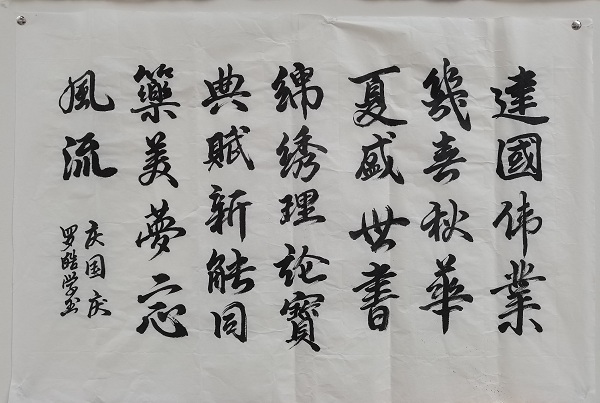 建國伟業
幾春秋華
夏盛世書
綿绣理論寶
典賦新能同
築美夢忘
風流
庆国庆
罗皓学书